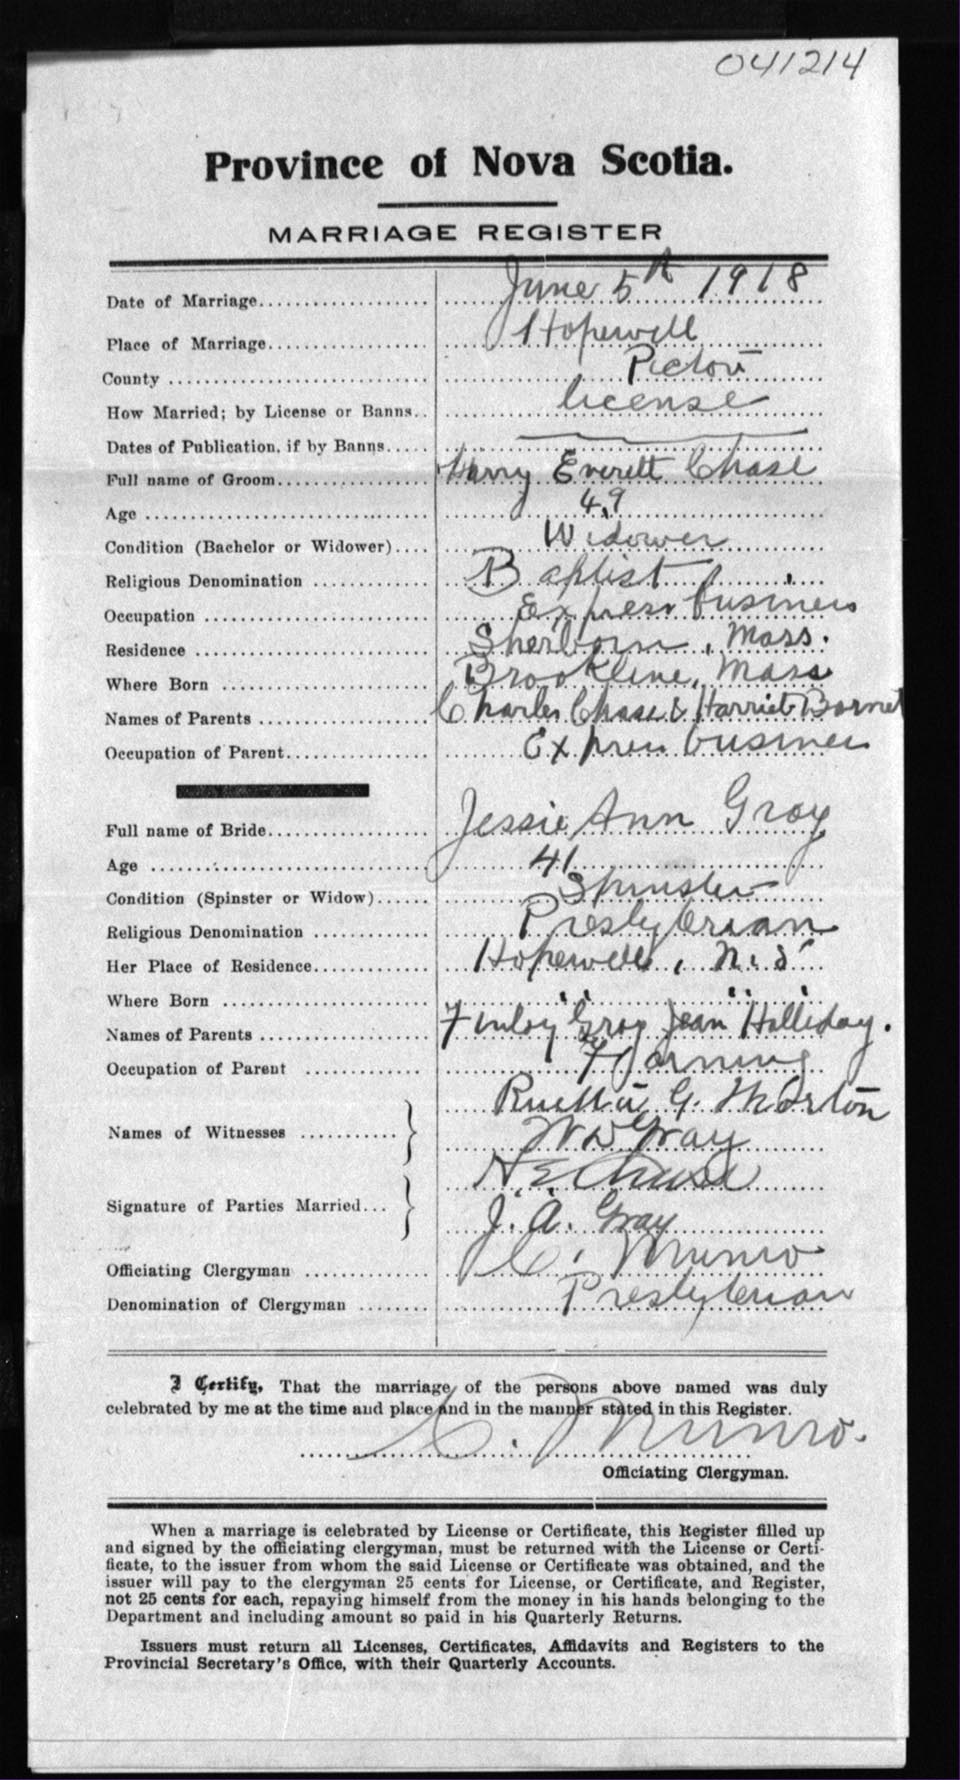 041214
Province of Nova Scotia.
MARRIAGE REGISTER
Date of Marriage June 5th 1918
Place of Marriage Hopewell
County Pictou
How Married; by License or Banns license
Dates of Publication, if by Banns
Full name of Groom Harry Everett Chase
Age 49
Condition (Bachelor or Widower) Widower
Religious Denomination Baptist
Occupation Express business
Residence Sherborn, Mass.
Where Born Brookline, Mass
Names of Parents Charles Chase & Harriet
Occupation of Parent Express business
Full name of Bride Jessie Ann Gray
Age 41
Condition (Spinster or Widow) Spinster
Religious Denomination Presbyterian
Her Place of Residence Hopewell, N.S
Where Born " " " "
Names of Parents Finlay Gray Jean Halliday.
Occupation of Parent Farming
Names of Witnesses G. Morton
W D Gray
Signature of Parties Married H E Chase
J. A. Gray
Officiating Clergyman C. Munro
Denomination of Clergyman Presbyterian
I Certify, That the marriage of the persons above named was duly
celebrated by me at the time and place and in the manner stated in this Register.
C. Munro.
Officiating Clergyman.
When a marriage is celebrated by License or Certificate, this Register filled up
and signed by the officiating clergyman, must be returned with the License or Certi-
ficate, to the issuer from whom the said License or Certificate was obtained, and the
issuer will pay to the clergyman 25 cents for License, or Certificate, and Register,
not 25 cents for each, repaying himself from the money in his hands belonging to the
Department and including amount so paid in his Quarterly Returns.
Issuers must return all Licenses, Certificates, Affidavits and Registers to the
Provincial Secretary's Office, with their Quarterly Accounts.